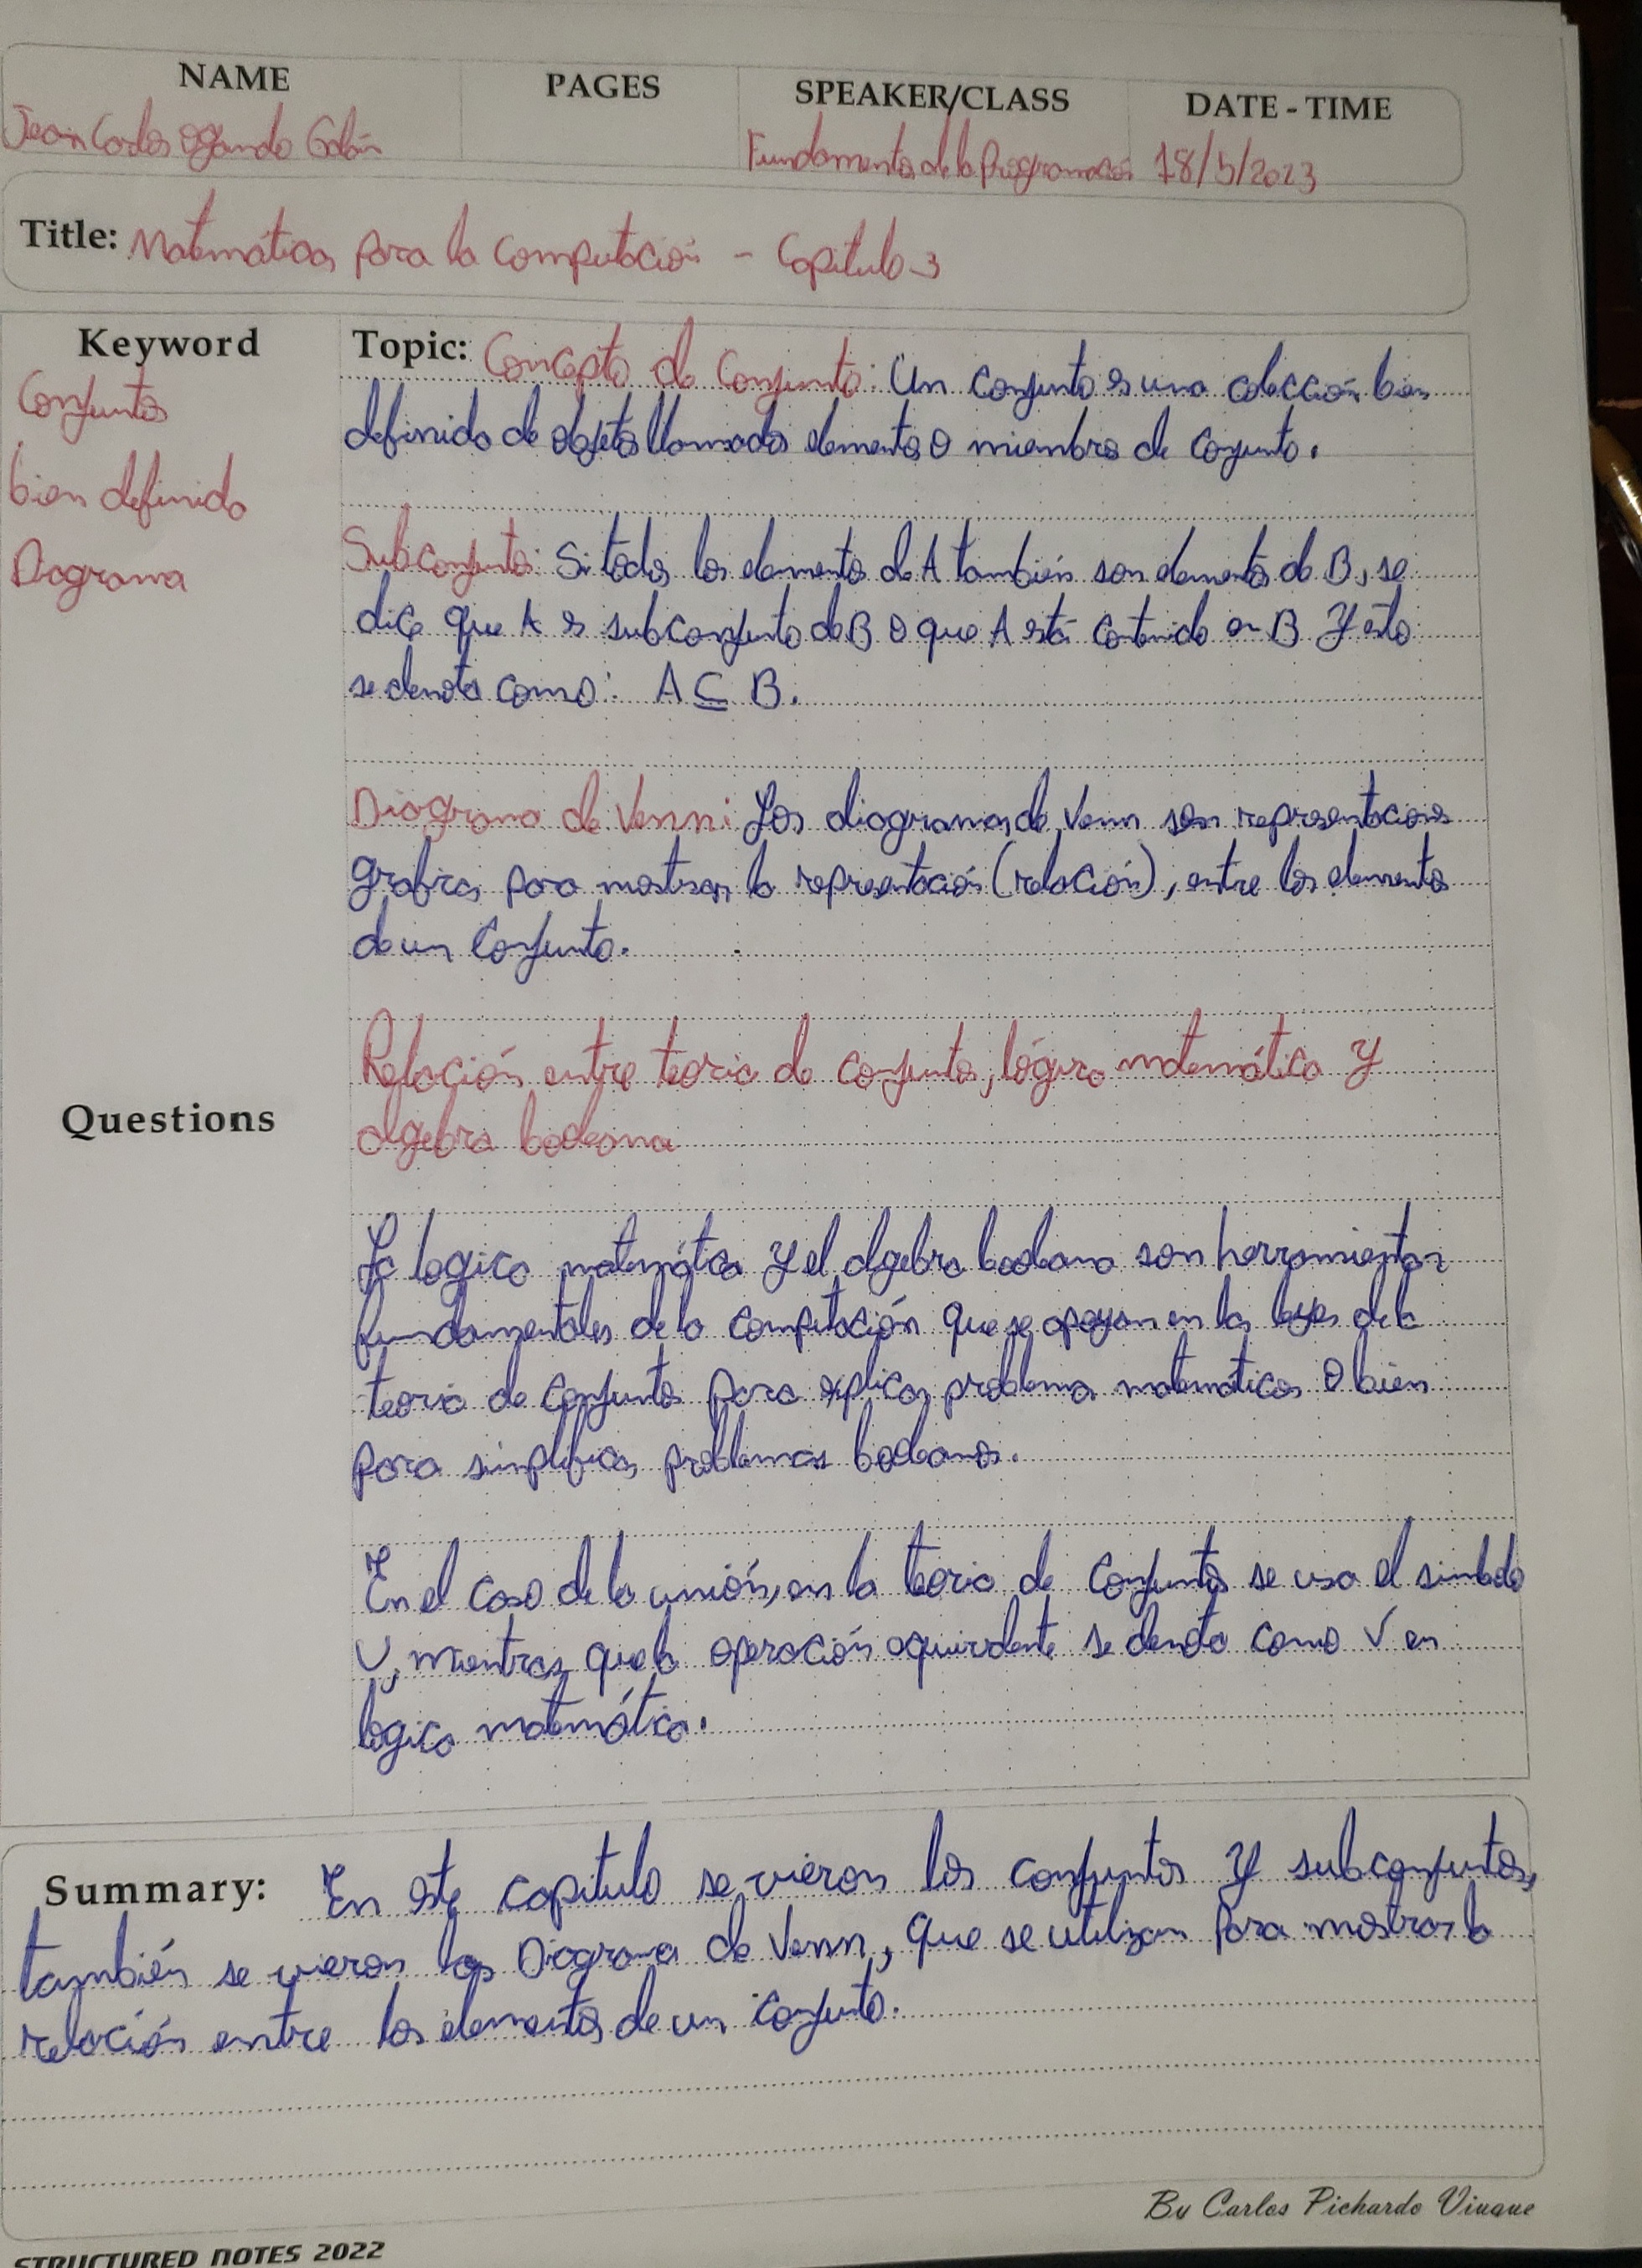 NAME
Jean Carlos Ogando Galán
PAGES
SPEAKER/CLASS
Fundamentos de la Programación
DATE - TIME
18/5/2023
Title: Matemáticas para la Computación - Capitulo 3
Keyword
Conjuntos
bien definido
Diagrama
Topic: Concepto de Conjunto: Un conjunto es una colección bien
definida de objetos llamados elementos o miembros de conjunto.
Subconjunto: Si todos los elementos de A también son elementos de B, se
dice que A es subconjunto de B o que A está contenido en B y esto
se denota como: A ⊆ B.
Diagrama de Venn: Los diagramas de Venn son representaciones
graficas para mostrar la representación (relación), entre los elementos
de un Conjunto.
Relación entre teoria de conjuntos, lógica matemática y
algebra booleana
Questions
La logica matemática y el algebra booleana son herramientas
fundamentales de la computación que se apoyan en las leyes de la
teoria de conjuntos para explicar problemas matemáticos o bien
para simplificar problemas booleanos.
En el caso de la unión, en la teoria de Conjuntos se usa el simbolo
U, mientras que la operación equivalente se denota como V en
lógica matemática.
Summary: En este capitulo se vieron los conjuntos y subconjuntos,
también se vieron los Diagrama de Venn, que se utilizan para mostrar la
relación entre los elementos de un conjunto.
By Carlos Pichardo Viuque
STRUCTURED NOTES 2022